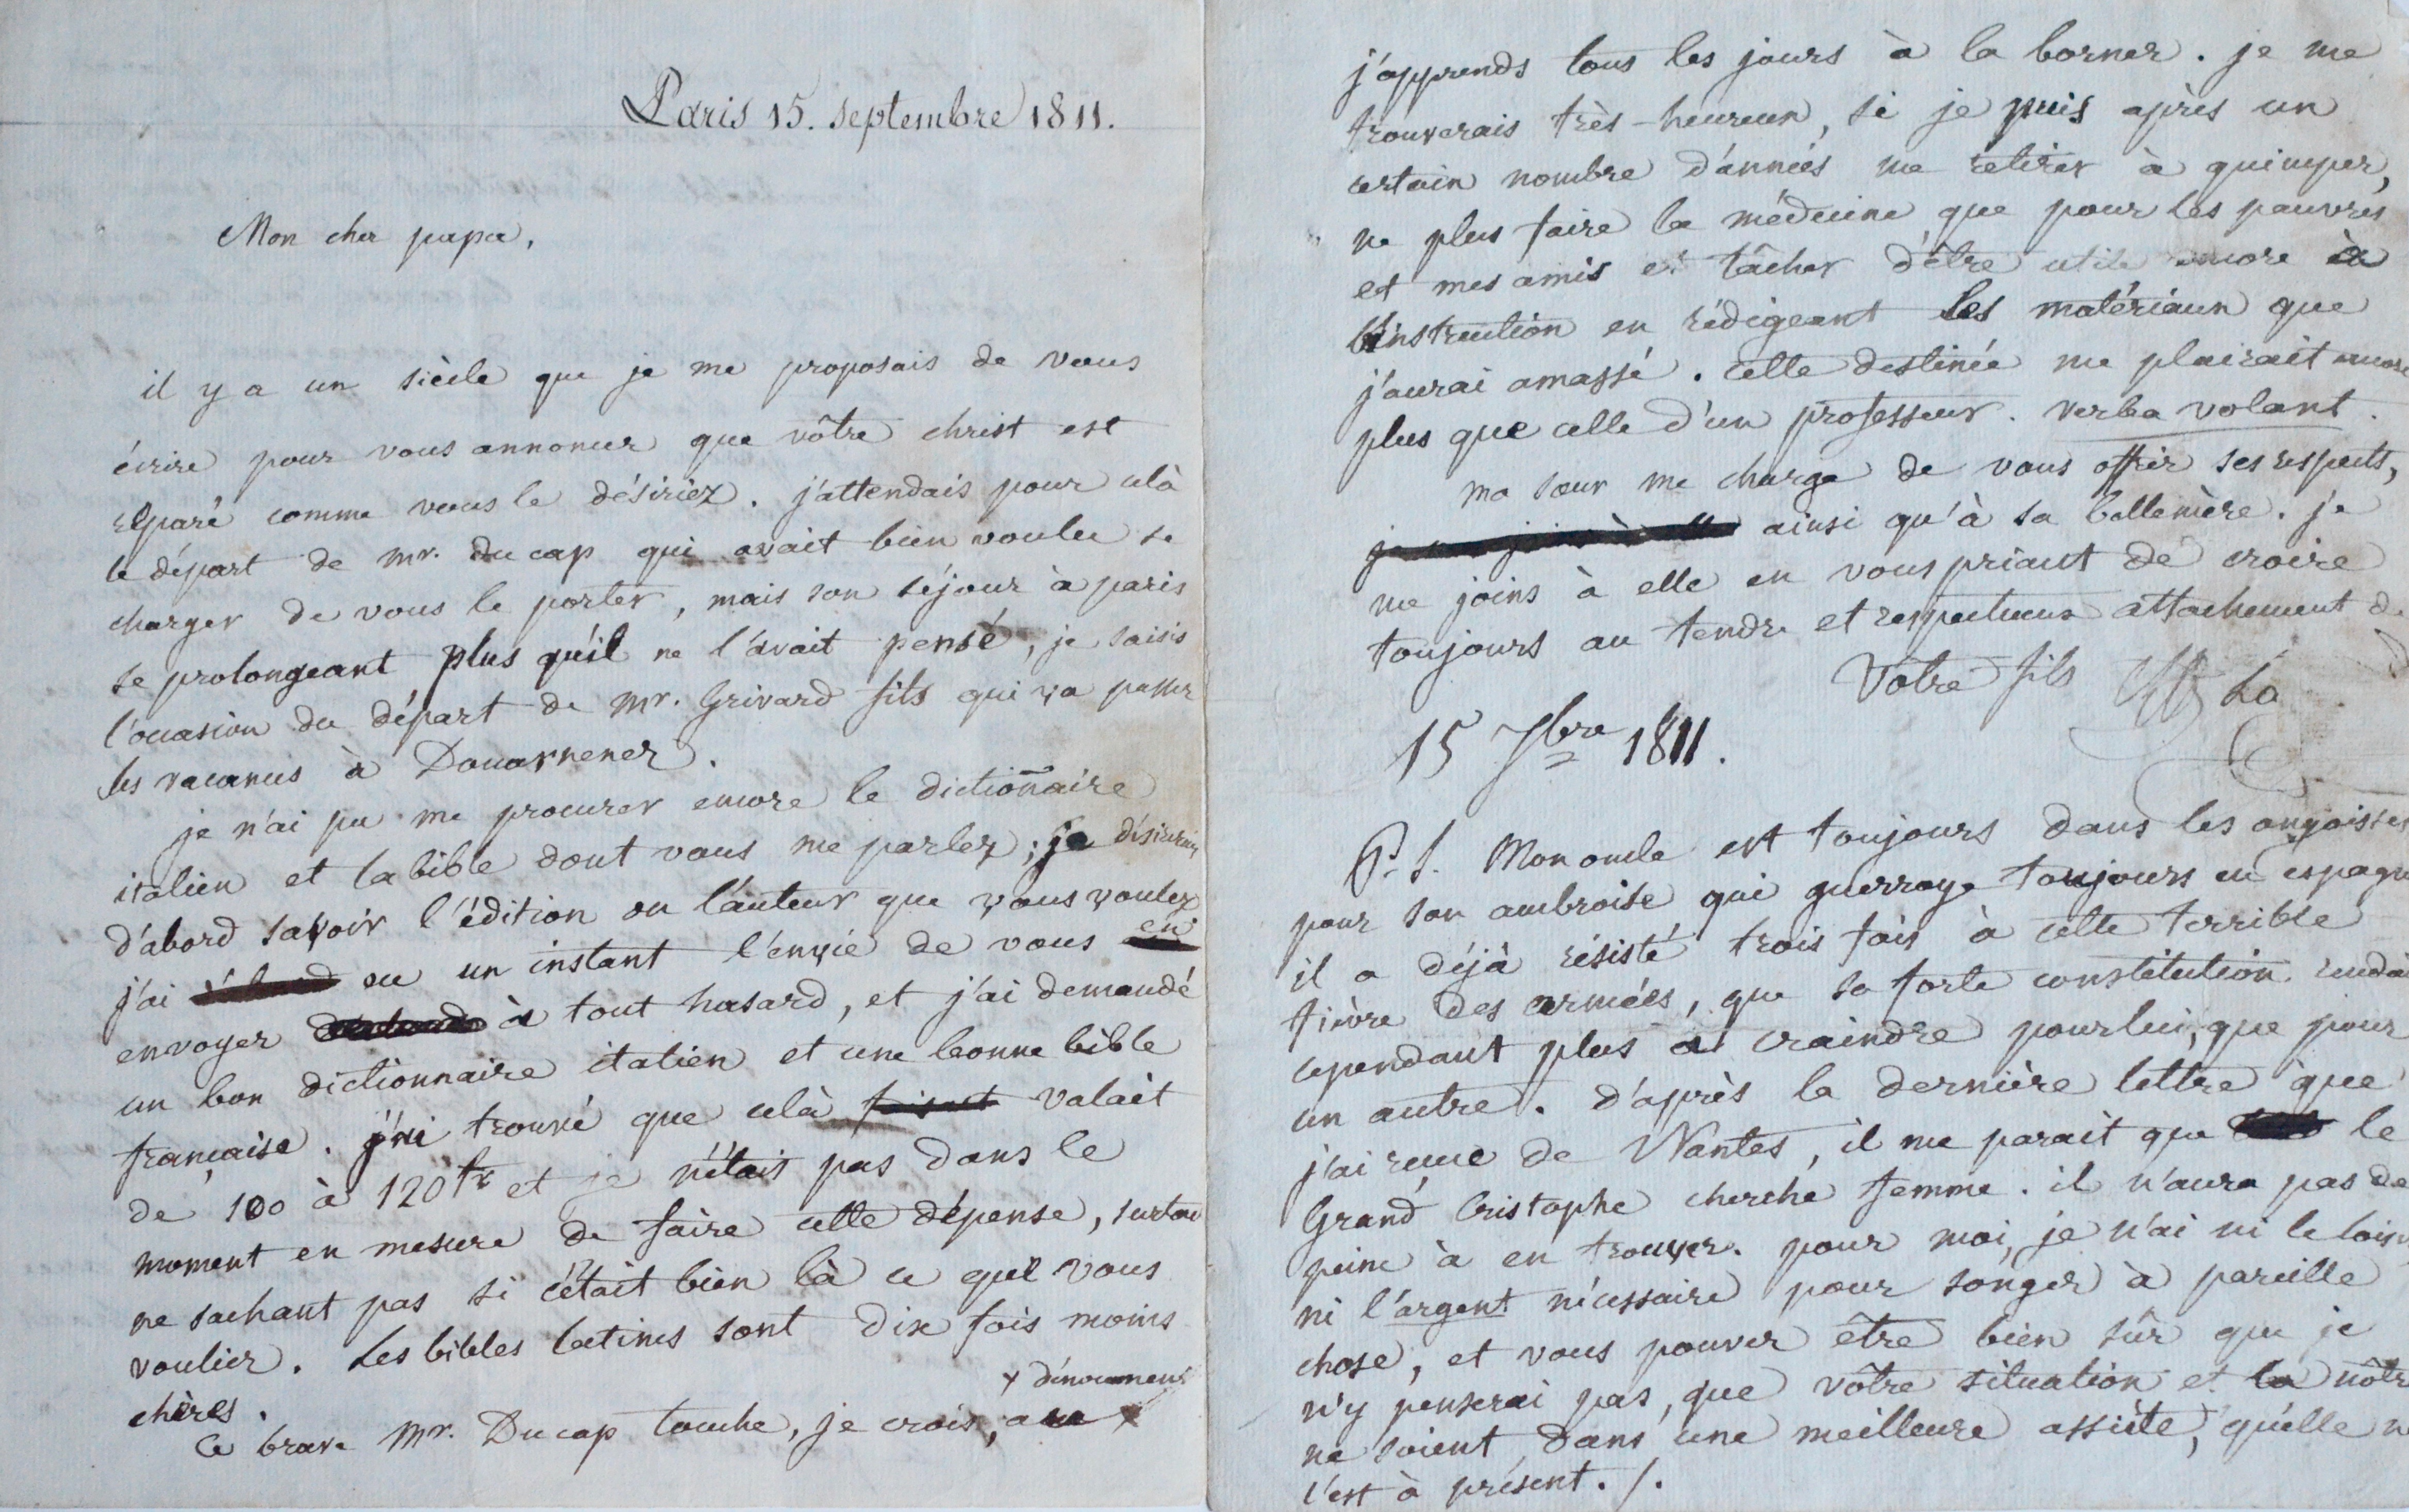 Paris 15. septembre 1811.
Mon cher papa,
il y a un siècle que je me proposais de vous
écrire pour vous annoncer que vôtre christ est
réparé comme vous le désiriez. j'attendais pour celà
le départ de mr. du cap qui avait bien voulu se
charger de vous le porter, mais son séjour à paris
se prolongeant plus qu'il ne l'avait pensé, je saisis
l'occasion du départ de mr. Grivard fils qui va passer
les vacances à Douarnenez.
je n'ai pu me procurer encore le dictionnaire
italien et la bible dont vous me parlez; je désirerais
d'abord savoir l'édition ou l'auteur que vous voulez
j'ai eu un instant l'envie de vous en
envoyer à tout hasard, et j'ai demandé
un bon dictionnaire italien et une bonne bible
française. j'ai trouvé que celà faisait valait
de 100 à 120 fr et je n'étais pas dans le
moment en mesure de faire cette dépense, surtout
ne sachant pas si c'était bien là ce que vous
vouliez. Les bibles latines sont dix fois moins
chères.
+ dénouement
Ce brave Mr. Ducap touche, je crois, au +
j'apprends tous les jours à la borner. je me
trouverais très-heureux, si je puis après un
certain nombre d'années me retirer à quimper,
ne plus faire la médecine que pour les pauvres
et mes amis et tâcher d'être utile encore à
l'instruction en rédigeant les matériaux que
j'aurai amassé. cette destinée me plairait encore
plus que celle d'un professeur. verba volant.
ma sœur me charge de vous offrir ses respects,
je me joins à elle ainsi qu'à sa bellemère. je
me joins à elle en vous priant de croire
toujours au tendre et respectueux attachement de
Votre fils
15 7bre 1811.
P.S. Mon oncle est toujours dans les angoisses
pour son ambroise qui guerroye toujours en espagne
il a déjà résisté trois fois à cette terrible
fièvre des armées, que sa forte constitution rendait
cependant plus à craindre pour lui, que pour
un autre. d'après la dernière lettre que
j'ai reçue de Nantes, il me parait que le
Grand Cristophe cherche femme. il n'aura pas de
peine à en trouver. pour moi, je n'ai ni le loisir
ni l'argent nécessaire pour songer à pareille
chose, et vous pouvez être bien sûr que je
n'y penserai pas, que vôtre situation et la nôtre
ne soient dans une meilleure assiète, qu'elle ne
l'est à présent. /.